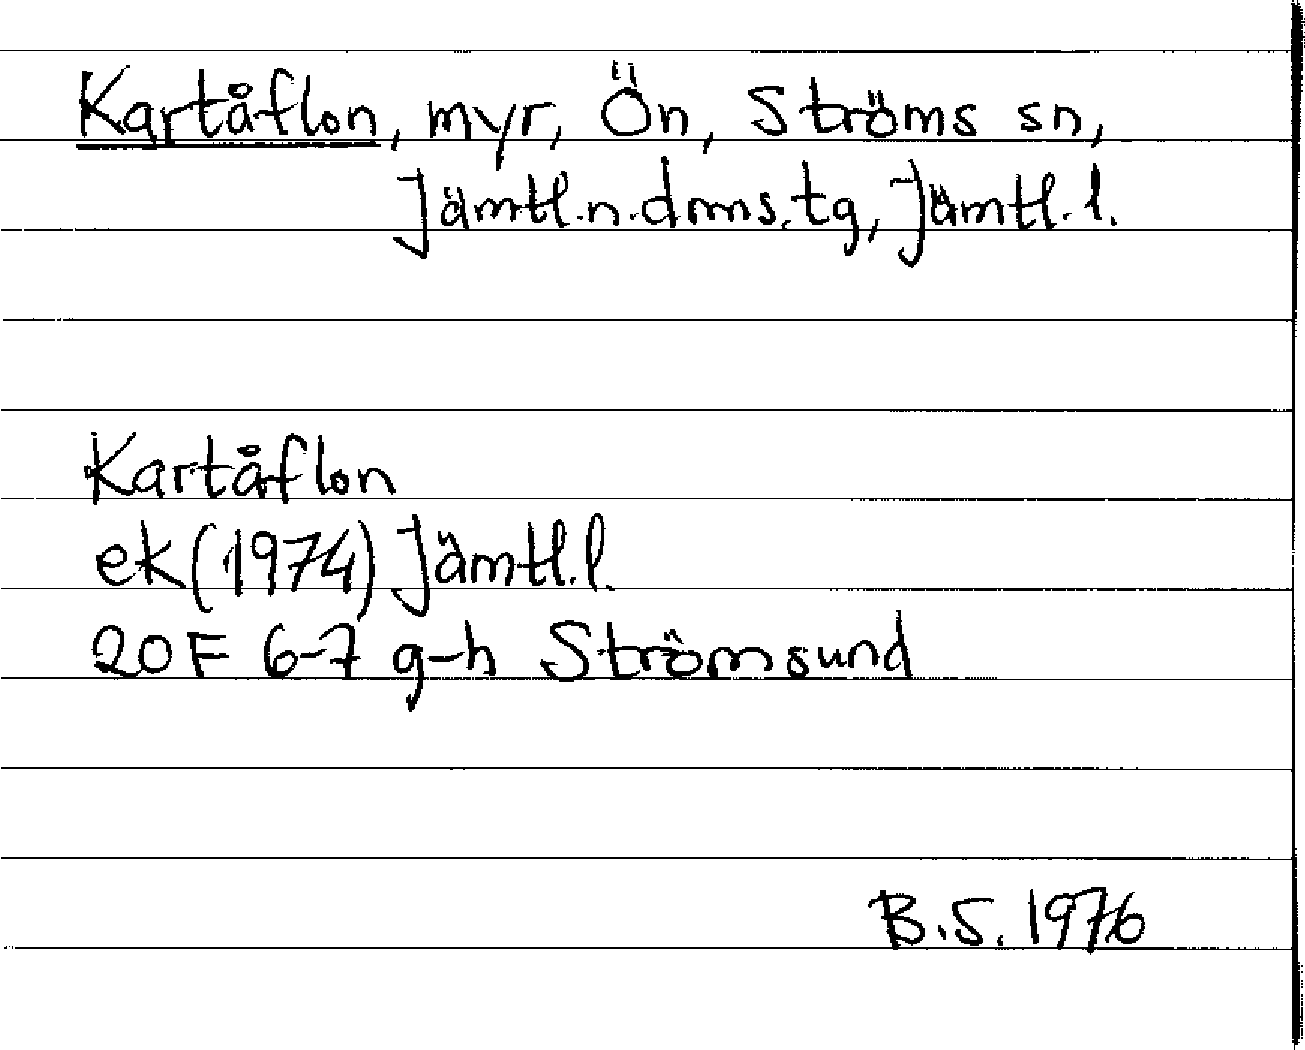 Kartåflon, myr, Ön, Ströms sn,
Jämtl.n.doms.tg, Jämtl.l.
Kartåflon
ek(1974) Jämtl.l.
20F 6-7 g-h Strömsund
B.S. 1976